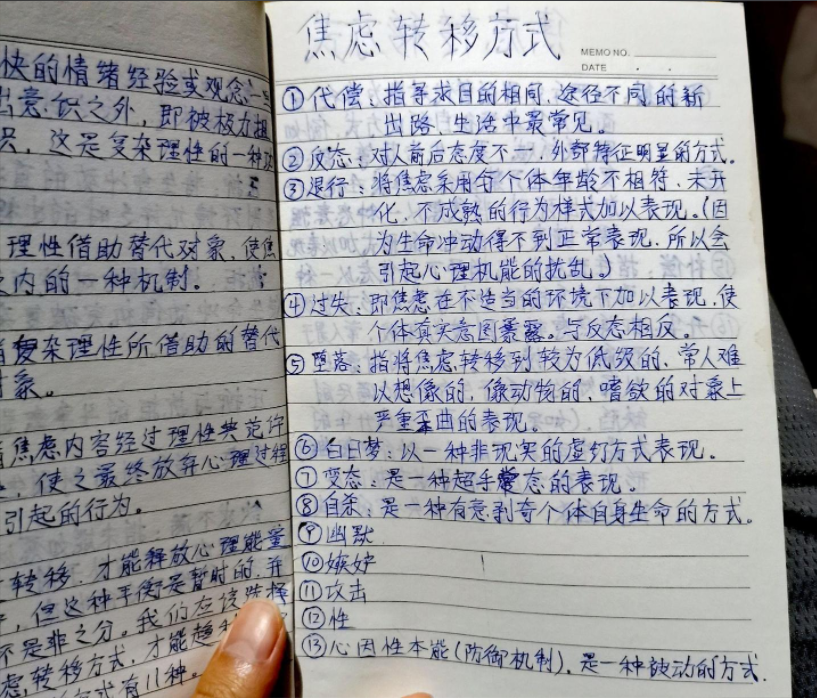 快的情绪经验或观念
出意识之外，即被极力
，这是复杂理性的一种
理性借助替代对象，使焦
内的一种机制。
复杂理性所借助的替代
对象。
焦虑内容经过理性
，使之最终放弃心理过程
引起的行为。
转移，才能释放心理能量
，但这种平衡是暂时的，并
不是非之分。我们应该选择
虑，转移方式，才能
方式有11种。
焦虑转移方式
MEMO NO.
DATE . .
①代偿：指寻求目的相同、途径不同的新
出路，生活中最常见。
②反态：对人前后态度不一，外部特征明显的方式。
③退行：将焦虑采用与个体年龄不相符、未开
化、不成熟的行为样式加以表现。（因
为生命冲动得不到正常表现，所以会
引起心理机能的扰乱。）
④过失：即焦虑在不适当的环境下加以表现，使
个体真实意图暴露。与反态相反。
⑤堕落：指将焦虑转移到较为低级的、常人难
以想像的、像动物的、嗜欲的对象上
严重歪曲的表现。
⑥白日梦：以一种非现实的虚幻方式表现。
⑦变态：是一种超乎常态的表现。
⑧自杀：是一种有意剥夺个体自身生命的方式。
⑨幽默
⑩嫉妒
⑪攻击
⑫性
⑬心因性本能（防御机制），是一种被动的方式.